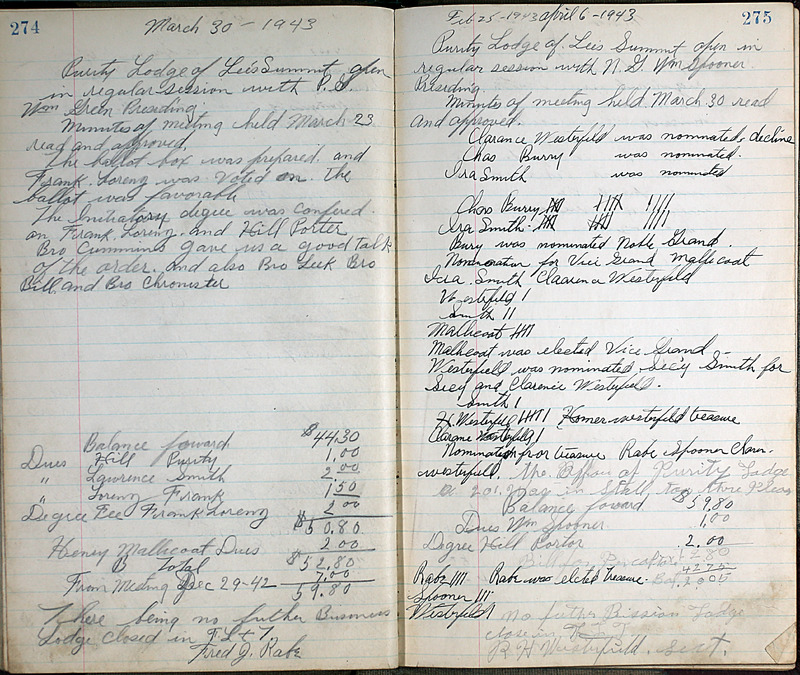 274
March 30 - 1943
Purity Lodge of Lees Summit open
in regular session with P. G.
Wm Green Presiding.
Minutes of meeting held March 23
read and approved.
The ballot box was prepared. and
Frank. Loreng was Voted on. the
ballot was favorable
The Initiatory degee was confered
on Frank Loreng. and Hill Porter
Bro Cummins gave us a good talk
of the order. and also Bro Leek Bro
Bill. and Bro Chronister
Balance forward $44.30
Dues Hill Purity 1.00
" Lawrence Smith 2.00
" Loreng Frank 1.50
Degree Fee Frank Loreng 2.00
$50.80
Henry Mallicoat Dues 2.00
Total $52.80
From Meeting Dec 29-42 7.00
59.80
There being no futher Business
Lodge closed in F. L + T.
Fred J. Rabe
275
Feb 25-1943 april 6-1943
Purity Lodge of Lees Summit open in
regular session with N. G. Wm Spooner
Presiding.
Minutes of meeting held March 30 read
and approved.
Clarance Westerfeld was nominated, decline
Chas Burry was nominated.
Ira Smith was nominated
Chas Burry
Ira Smith
Bury was nominated Noble Grand.
Nomination for Vice Grand Mallicoat
Ira. Smith Claarence Westerfield
Westerfield 1
Smith 11
Mallicoat
Mallicoat was elected Vice Grand
Westerfield was nominated Secy Smith for
Secy and Clarence Westerfield.
Smith 1
H. Westerfield Homer westerfield treasure
Clarance Westerfield 1
Nomination for treasure Rabe Spooner Claren-
westerfield. of Purity Lodge
201. in
Balance foward $59.80
Dues Wm Spooner 1.00
Degree Hill Portor 2.00
Bill for
Rabe //// Rabe was elected treasure.
Spooner ///
Westerfield 1
No futher Lodge
close in
R H Westerfield. sect.